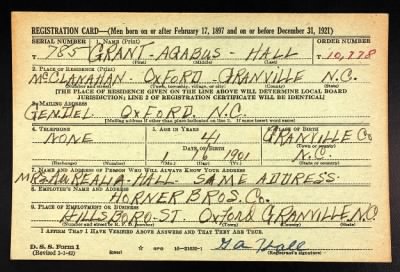 REGISTRATION CARD—(Men born on or after February 17, 1897 and on or before December 31, 1921)
SERIAL NUMBER 1. NAME (Print) ORDER NUMBER
T 785 GRANT - AGABUS - HALL T 10,778
(First) (Middle) (Last)
2. PLACE OF RESIDENCE (Print)
McCLANAHAN - OXFORD - GRANVILLE N.C.
(Number and street) (Town, township, village, or city) (County) (State)
[THE PLACE OF RESIDENCE GIVEN ON THE LINE ABOVE WILL DETERMINE LOCAL BOARD
JURISDICTION; LINE 2 OF REGISTRATION CERTIFICATE WILL BE IDENTICAL]
3. MAILING ADDRESS
GEN DEL OXFORD. N.C.
[Mailing address if other than place indicated on line 2. If same insert word same]
4. TELEPHONE 5. AGE IN YEARS 6. PLACE OF BIRTH
NONE 41 GRANVILLE Co
DATE OF BIRTH (Town or county)
1 6 1901 N.C.
(Exchange) (Number) (Mo.) (Day) (Yr.) (State or country)
7. NAME AND ADDRESS OF PERSON WHO WILL ALWAYS KNOW YOUR ADDRESS
MRS. AUREALIA - HALL - SAME ADDRESS.
8. EMPLOYER'S NAME AND ADDRESS
HORNER BROS. Co.
9. PLACE OF EMPLOYMENT OR BUSINESS
HILLSBORO - ST. OXFORD GRANVILLE, N.C.
(Number and street or R. F. D. number) (Town) (County) (State)
I AFFIRM THAT I HAVE VERIFIED ABOVE ANSWERS AND THAT THEY ARE TRUE.
D. S. S. Form 1
(Revised 1-1-42) GPO 16—21630-1 G A Hall
(Registrant's signature)